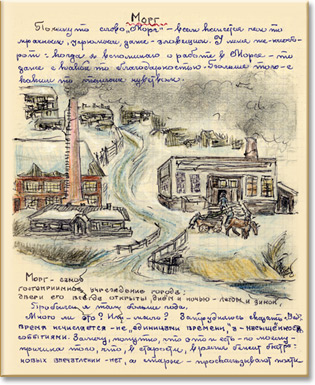 Морг
Почему-то слово "Морг" – всем кажется чем-то
мрачным, угрюмым, даже – зловещим. У меня же – наобо-
рот: когда я вспоминаю о работе в Морге – то
даже с какой-то благодарностью. Больше того – с
каким-то теплым чувством.
Морг – самое
гостеприимное учреждение города:
двери его всегда открыты, днем и ночью – летом и зимой.
Пробыла я там больше года.
Много ли это? Или – мало? Затрудняюсь сказать. Ведь
время исчисляется – не единицами времени, а – насыщенностью
событиями. Замечу, попутно, что это-то и есть – по-моему –
причина того, что, в старости, время бежит быстро:
новых впечатлений – нет, а старые – проскальзывают